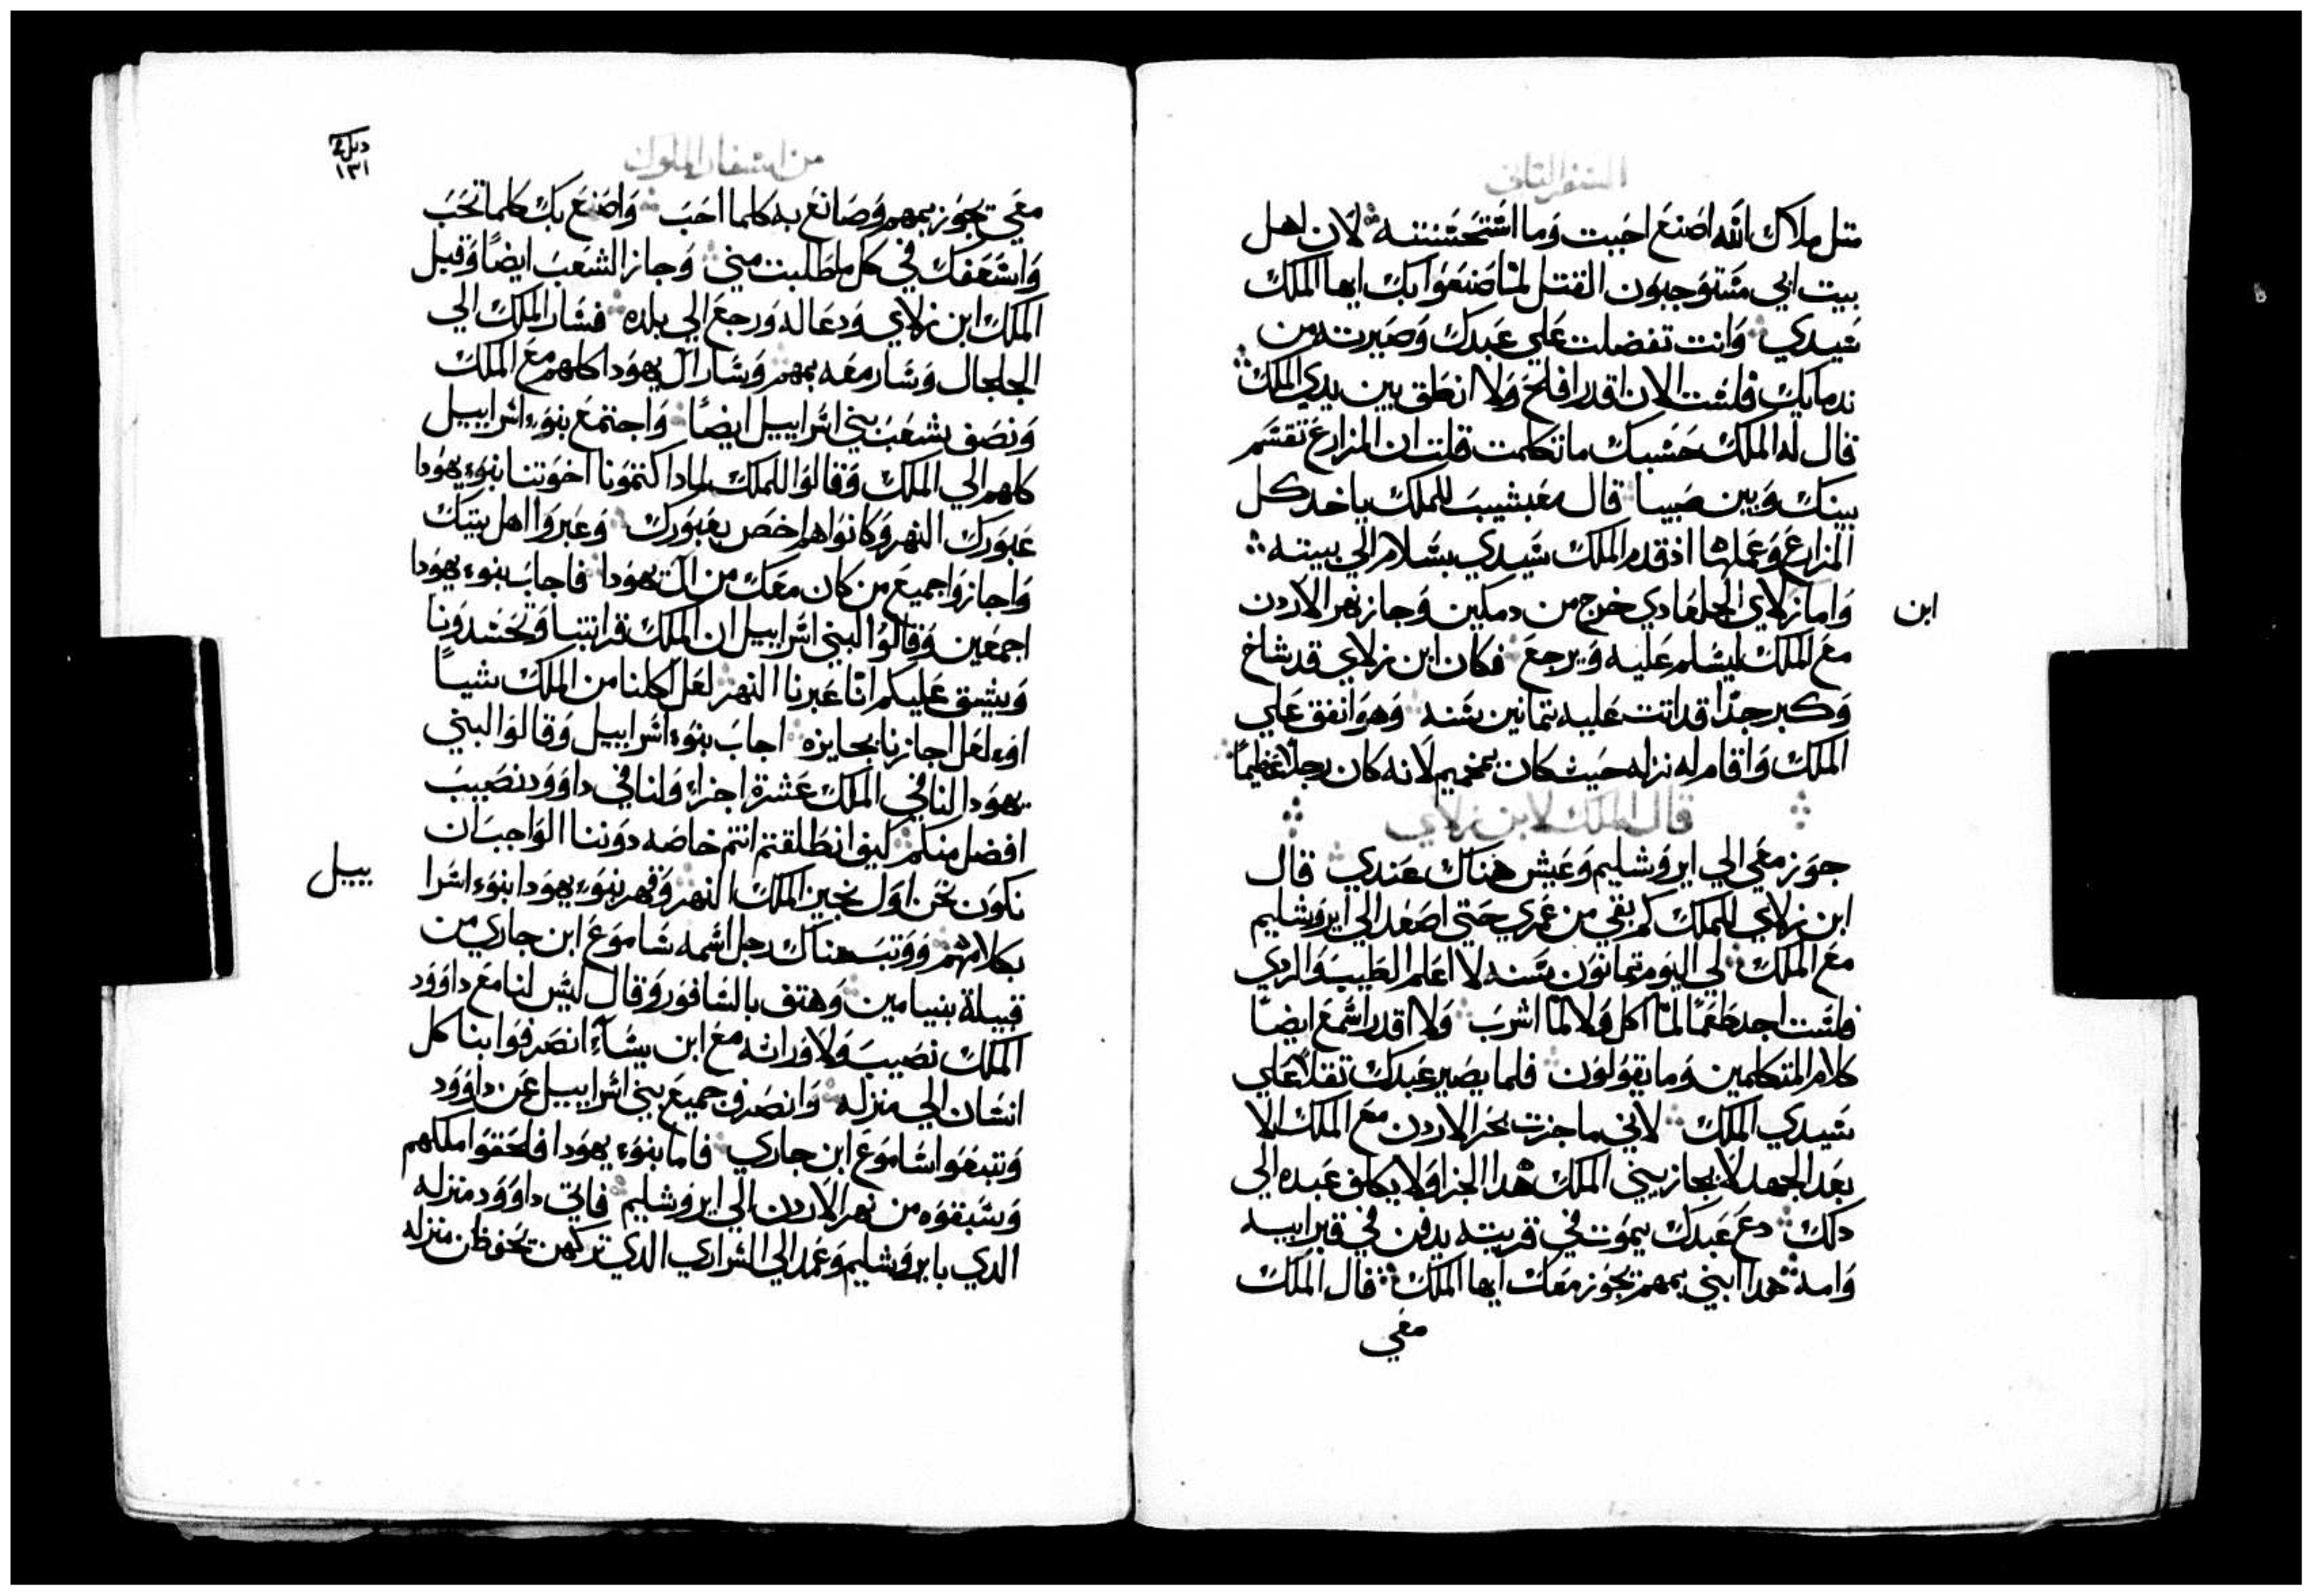 السفر الثاني
متل ملاك الله اصنع احببت وما استحسنته لان اهل
بيت ابي مستوجبون القتل لما صنعوا بك ايها الملك
سيدي وانت تفضلت علي عبدك وصيرته من
ندمايك فلست الان اقدر افلح ولا انطق بين يدي الملك
قال له الملك حسبك ما تكلمت قلت ان المزارع تقسم
بينك وبين صيبا قال مفبشيب للملك ياخد كل
المزارع وعملها اذ قدم الملك سيدي بسلام الي بيته
ابن
واما زلاي الجلعادي خرج من دمكين وجاز نهر الاردن
مع الملك ليسلم عليه ويرجع فكان ابن زلاي قد شاخ
وكبر جدا قد اتت عليه تمانين سنه وهو انفق علي
الملك واقام له نزله حيت كان بمخيم لانه كان رجلا عظيما
قال الملك لابن زلاي
جوز معي الي ايروشليم وعيش هناك عندي قال
ابن زلاي للملك كم بقي من عمري حتي اصعد الي ايروشليم
مع الملك لي اليوم تمانون سنه لا اعلم الطيب والردي
فلست اجد طعما لما اكل ولا لما اشرب ولا اقدر اسمع ايضا
كلام المتكلمين وما يقولون فلما يصير عبدك تقلا علي
سيدي الملك لاني ما جزت بحر الاردن مع الملك الا
بعد الجهد لا يجازيني الملك هدا الجزا ولا يكلف عبده الي
دلك دع عبدك يموت في قريته يدفن في قبر ابيه
وامه هدا ابني بمهم يجوز معك ايها الملك قال الملك
معي
من اسفار الملوك
١٣١
معي يجوز بمهم وصانع به كلما احب واصنع بك كلما تحب
واسعفك في كل ما طلبت مني وجاز الشعب ايضا وقبل
الملك ابن زلاي ودعا له ورجع الي بلده فسار الملك الي
الجلجال وسار معه بمهم وسار ال يهودا كلهم مع الملك
ونصف شعب بني اسراييل ايضا واجتمع بنوء اسراييل
كلهم الي الملك وقالوا للملك لمادا كتمونا اخوتنا بنوء يهودا
عبورك النهر وكانوا هم اخص بعبورك وعبروا اهل بيتك
واجازوا جميع من كان معك من ال يهودا فاجاب بنوء يهودا
اجمعين وقالوا لبني اسراييل ان الملك قرابتنا وتحسدونا
ويشق عليكم انا عبرنا النهر لعل اكلنا من الملك شيا
اوء لعل اجازنا بجايزه اجاب بنوء اسراييل وقالوا لبني
يهودا لنا في الملك عشرة اجزاء وانا في داوود نصيب
افضل منكم كيف انطلقتم انتم خاصه دوننا الواجب ان
نكون نحن اول نجيز الملك النهر وقهر بنوء يهودا بنوء اسرا
ييل
بكلامهم ووتب هناك رجل اسمه ساموع ابن جاري من
قبيلة بنيامين وهتف بالسافور وقال ليس لنا مع داوود
الملك نصيب ولا وراثه مع ابن يسآء انصرفوا بنا كل
انسان الي منزله وانصرف جميع بني اسراييل عن داوود
وتبعوا ساموع ابن جاري فاما بنوء يهودا فلحقوا ملكهم
وسبقوه من نهر الاردن الي ايروشليم فاتي داوود منزله
الدي بايروشليم وعمد الي السراري الدي تركهن يحفظن منزله